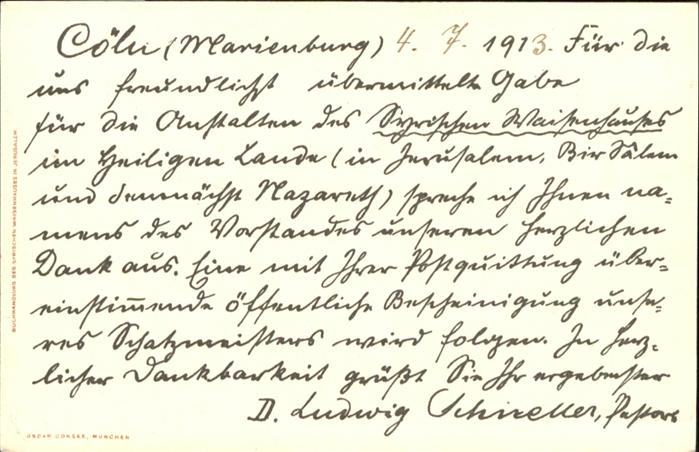 Cöln (Marienburg) 4. 7. 1913. Für die
uns freundlichst übermittelte Gabe
für die Anstalten des Syrischen Waisenhauses
im Heiligen Lande (in Jerusalem, Bir Sâlem
und demnächst Nazareth) spreche ich Ihnen na-
mens des Vorstandes unseren herzlichen
Dank aus. Eine mit Ihrer Postquittung über-
einstimmende öffentliche Bescheinigung unse-
res Schatzmeisters wird folgen. In herz-
licher Dankbarkeit grüßt Sie Ihr ergebenster
D. Ludwig Schneller, Pastor
BUCHHANDLUNG DES SYRISCHEN WAISENHAUSES IN JERUSALEM
OSCAR CONSÉE, MÜNCHEN